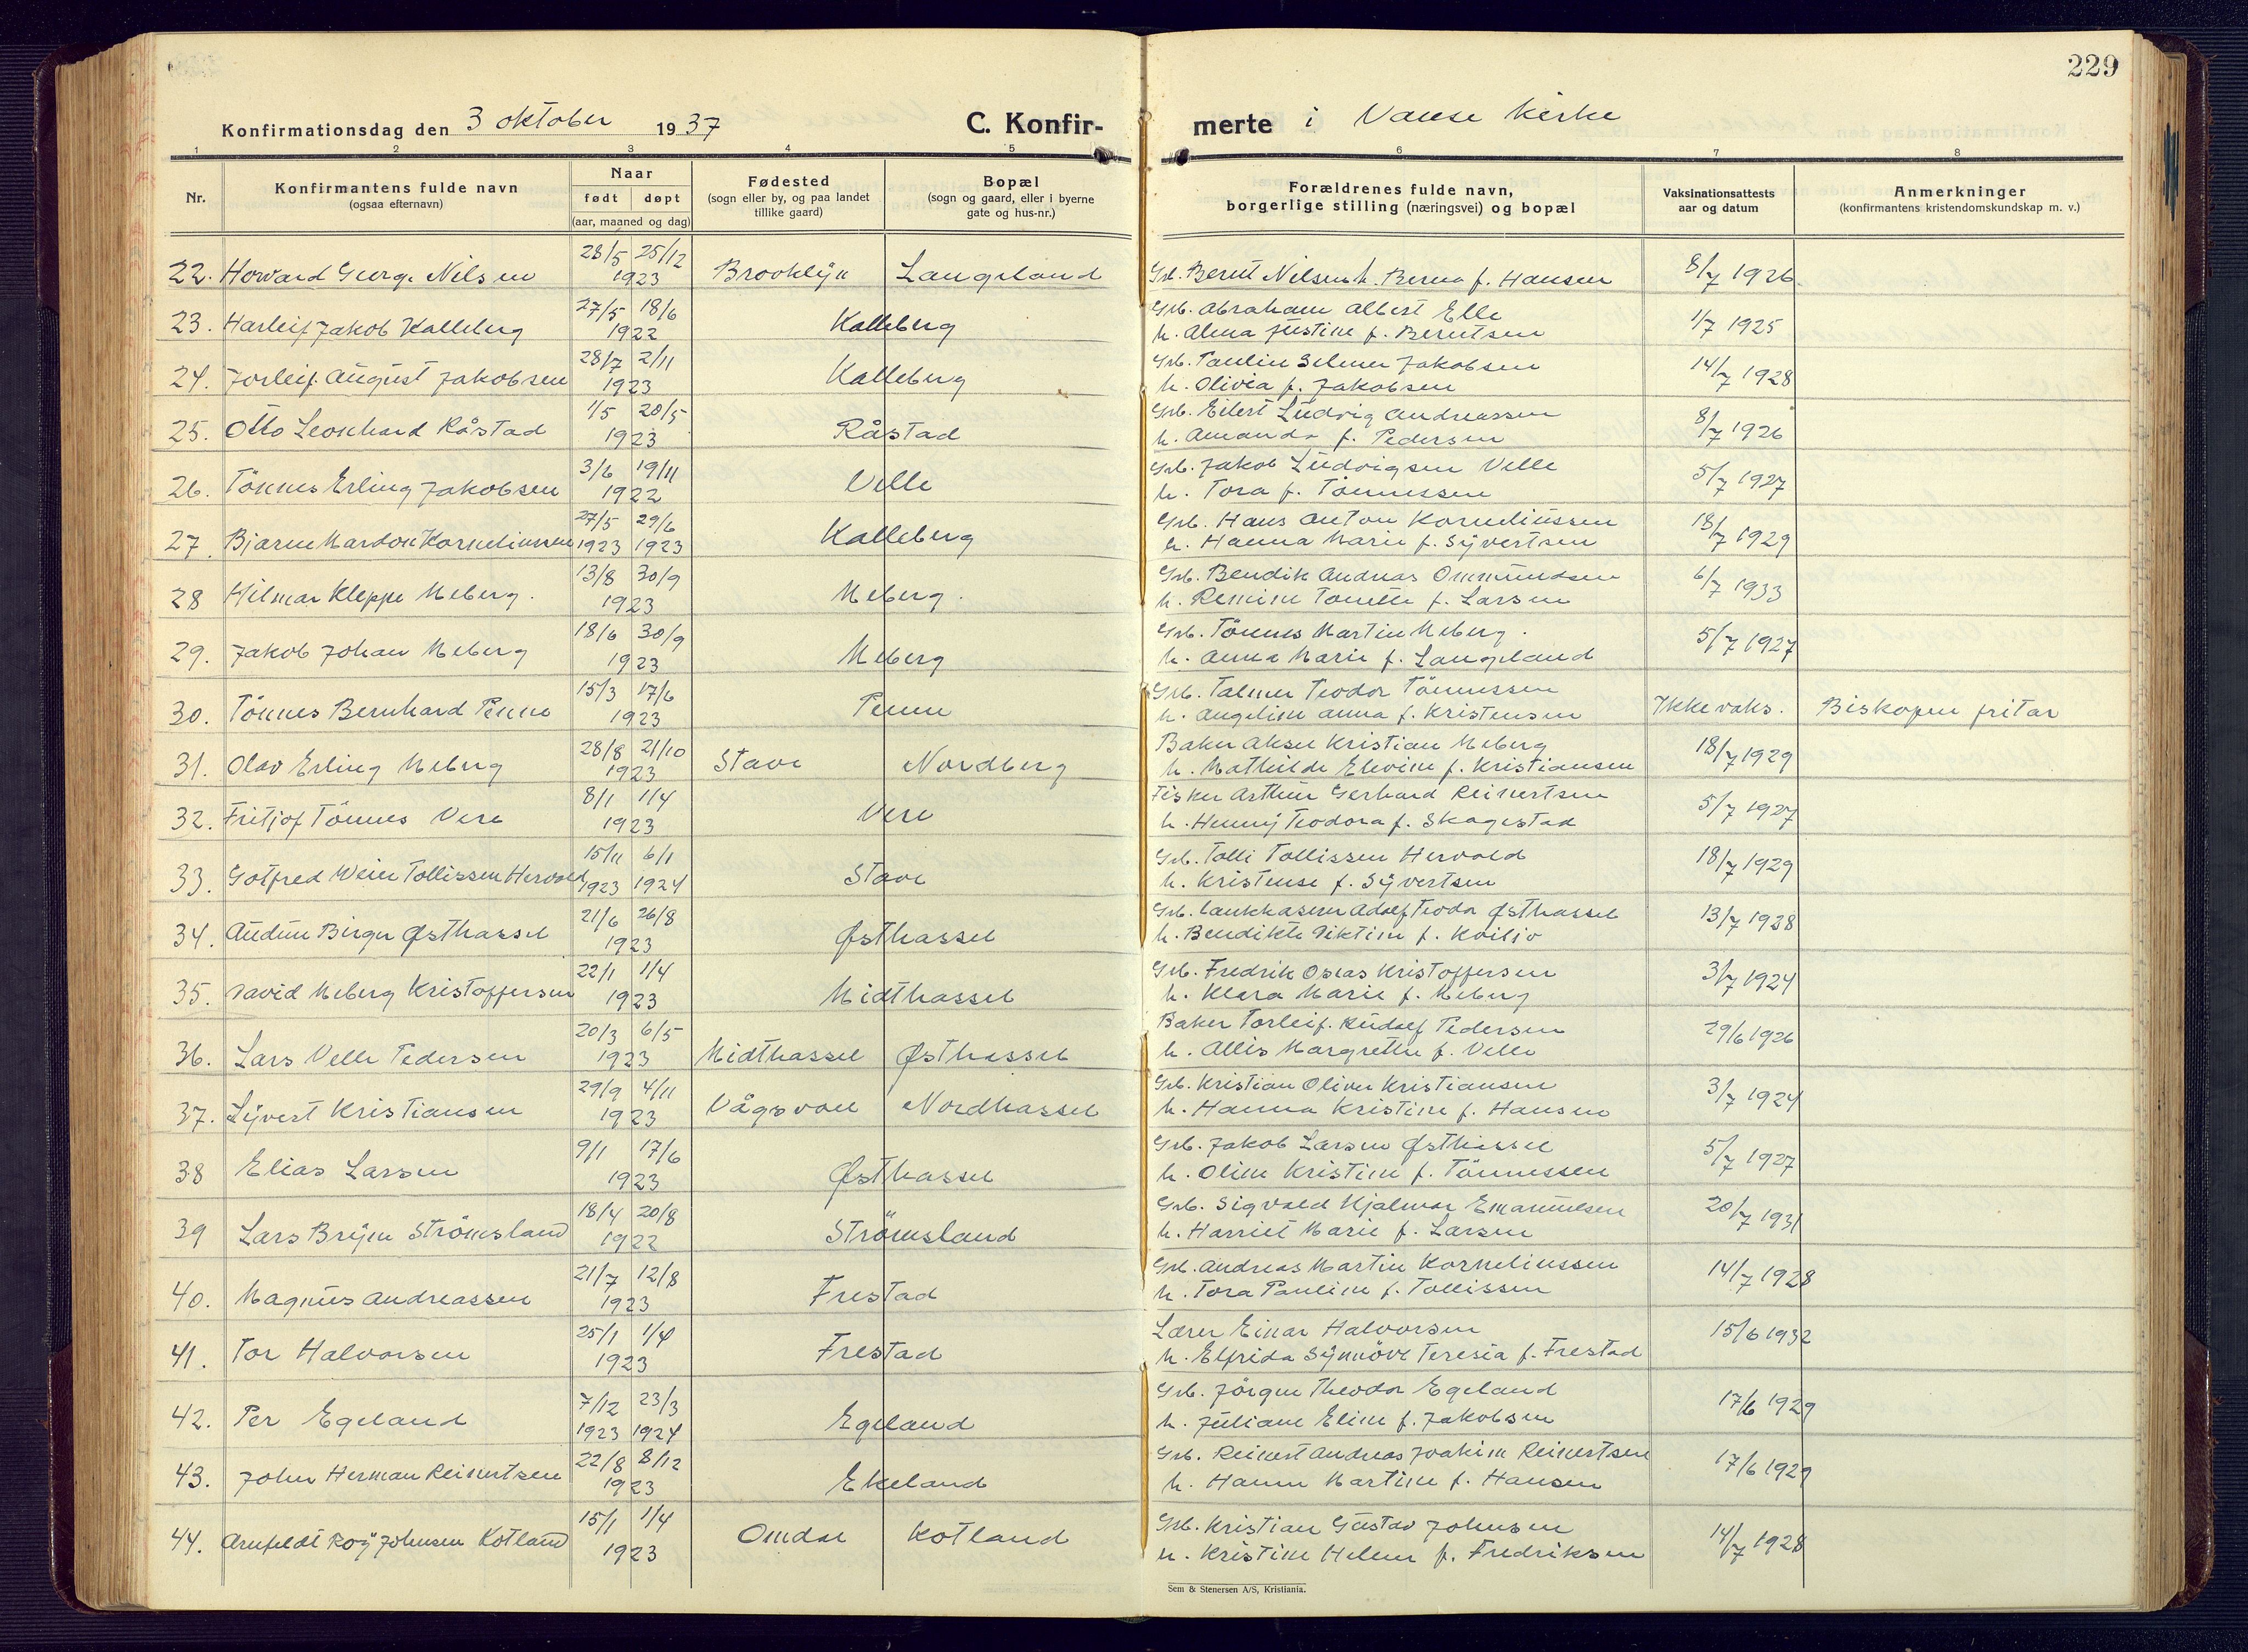 229
Konfirmationsdag den 3 oktober 1937 C. Konfir-merte i Vanse kirke
1 2 3 4 5 6 7 8
Nr. Konfirmantens fulde navn (ogsaa efternavn) Naar født døpt (aar, maaned og dag) Fødested (sogn eller by, og paa landet tillike gaard) Bopæl (sogn og gaard, eller i byerne gate og hus-nr.) Forældrenes fulde navn, borgerlige stilling (næringsvei) og bopæl Vaksinationsattests aar og datum Anmerkninger (konfirmantens kristendomskundskap m. v.)
22. Howard Georg Nilsen 28/5 25/12 1923 Brooklyn Langeland Grb. Bernt Nilsen h. Berna f. Hansen 8/7 1926
23. Harleif Jakob Kalleberg 27/5 18/6 1922 Kalleberg Grb. Abraham Albert Elle
h. Alma Justine f. Berntsen 1/7 1925
24. Torleif August Jakobsen 28/7 2/11 1923 Kalleberg Grb. Paulin Selmer Jakobsen
h. Olivia f. Jakobsen 14/7 1928
25. Otto Leonhard Råstad 1/5 20/5 1923 Råstad Grb. Eilert Ludvig Andreassen
h. Amanda f. Pedersen 8/7 1926
26. Tönnes Erling Jakobsen 3/6 19/11 1922 Velle Grb. Jakob Ludvigsen Velle
h. Tora f. Tönnessen 5/7 1927
27. Bjarne Mardon Korneliussen 27/5 29/6 1923 1923 Kalleberg Grb. Hans Anton Korneliussen
h. Hanna Marie f. Syvertsen 18/7 1929
28 Hilmar Kleppe Meberg. 13/8 30/9 1923 Meberg. Grb. Bendik Andreas Ommundsen
h. Remine Tonette f. Larsen 6/7 1933
29. Jakob Johan Meberg 18/6 30/9 1923 Meberg Grb. Tönnes Martin Meberg.
h. Anna Marie f. Langeland 5/7 1927
30. Tönnes Bernhard Penne 15/3 17/6 1923 Penne Grb. Talmer Teodor Tönnessen
h. Angeline Anna f. Kristensen Ikke vaks. Biskopen fritar
31. Olav Erling Meberg 28/8 21/10 1923 Stave Nordberg Baker Aksel Kristian Meberg
h. Mathilde Elevine f. Kristiansen 18/7 1929
32. Fritjof Tönnes Vere 8/1 1/4 1923 Vere Fisker Arthur Gerhard Reinertsen
h. Henny Teodora f. Skagestad 5/7 1927
33. Gotfred Wein Tollissen Hervold 15/11 6/1 1923 1924 Stave Grb. Tolli Tollissen Hervold
h. Kristense f. Syvertsen 18/7 1929
34. Audun Birger Østhassel 21/6 26/8 1923 Østhassel Grb. Adolf Teodor Østhassel
h. Bendikte f. Kviljo 13/7 1928
35. David Meberg Kristoffersen 22/1 1/4 1923 Midthassel Grb. Fredrik Oseas Kristoffersen
h. Klara Marie f. Meberg 3/7 1924
36. Lars Velle Pedersen 20/3 6/5 1923 Midthassel Østhassel Baker Torleif Rudolf Pedersen
h. Allis Margrethe f. Velle 29/6 1926
37. Syvert Kristiansen 29/9 4/11 1923 Vågsvoll Nordhassel Grb. Kristian Oliver Kristiansen
h. Hanna Kristine f. Hansen 3/7 1924
38 Elias Larsen 9/1 17/6 1923 Østhassel Grb. Jakob Larsen Østhassel
h. Oline Kristine f. Tönnessen 5/7 1927
39 Lars Bryn Strömsland 18/4 20/8 1922 Strömsland Grb. Sigvald Hjalmar Emanuelsen
h. Harriet Marie f. Larsen 20/7 1931
40. Magnus Andreassen 21/7 12/8 1923 Frestad Grb. Andreas Martin Korneliussen
h. Tora Pauline f. Tollissen 14/7 1928
41. Tor Halvorsen 25/1 1/4 1923 Frestad Lærer Einar Halvorsen
h. Elfrida Synnöve Teresia f. Frestad 15/6 1932
42. Per Egeland 7/12 23/3 1923 1924 Egeland Grb. Jörgen Theodor Egeland
h. Juliane Eline f. Jakobsen 17/6 1929
43. John Herman Reinertsen 22/8 8/12 1923 Ekeland Grb. Reinert Andreas Joakim Reinertsen
h. Hanne Martine f. Hansen 17/6 1929
44. Arnfeldt Roy Johnsen Kotland 15/1 1/4 1923 Omdal Kotland Grb. Kristian Gustav Johnsen
h. Kristine Helene f. Fredriksen 14/7 1928
Sem & Stenersen A/S, Kristiania.